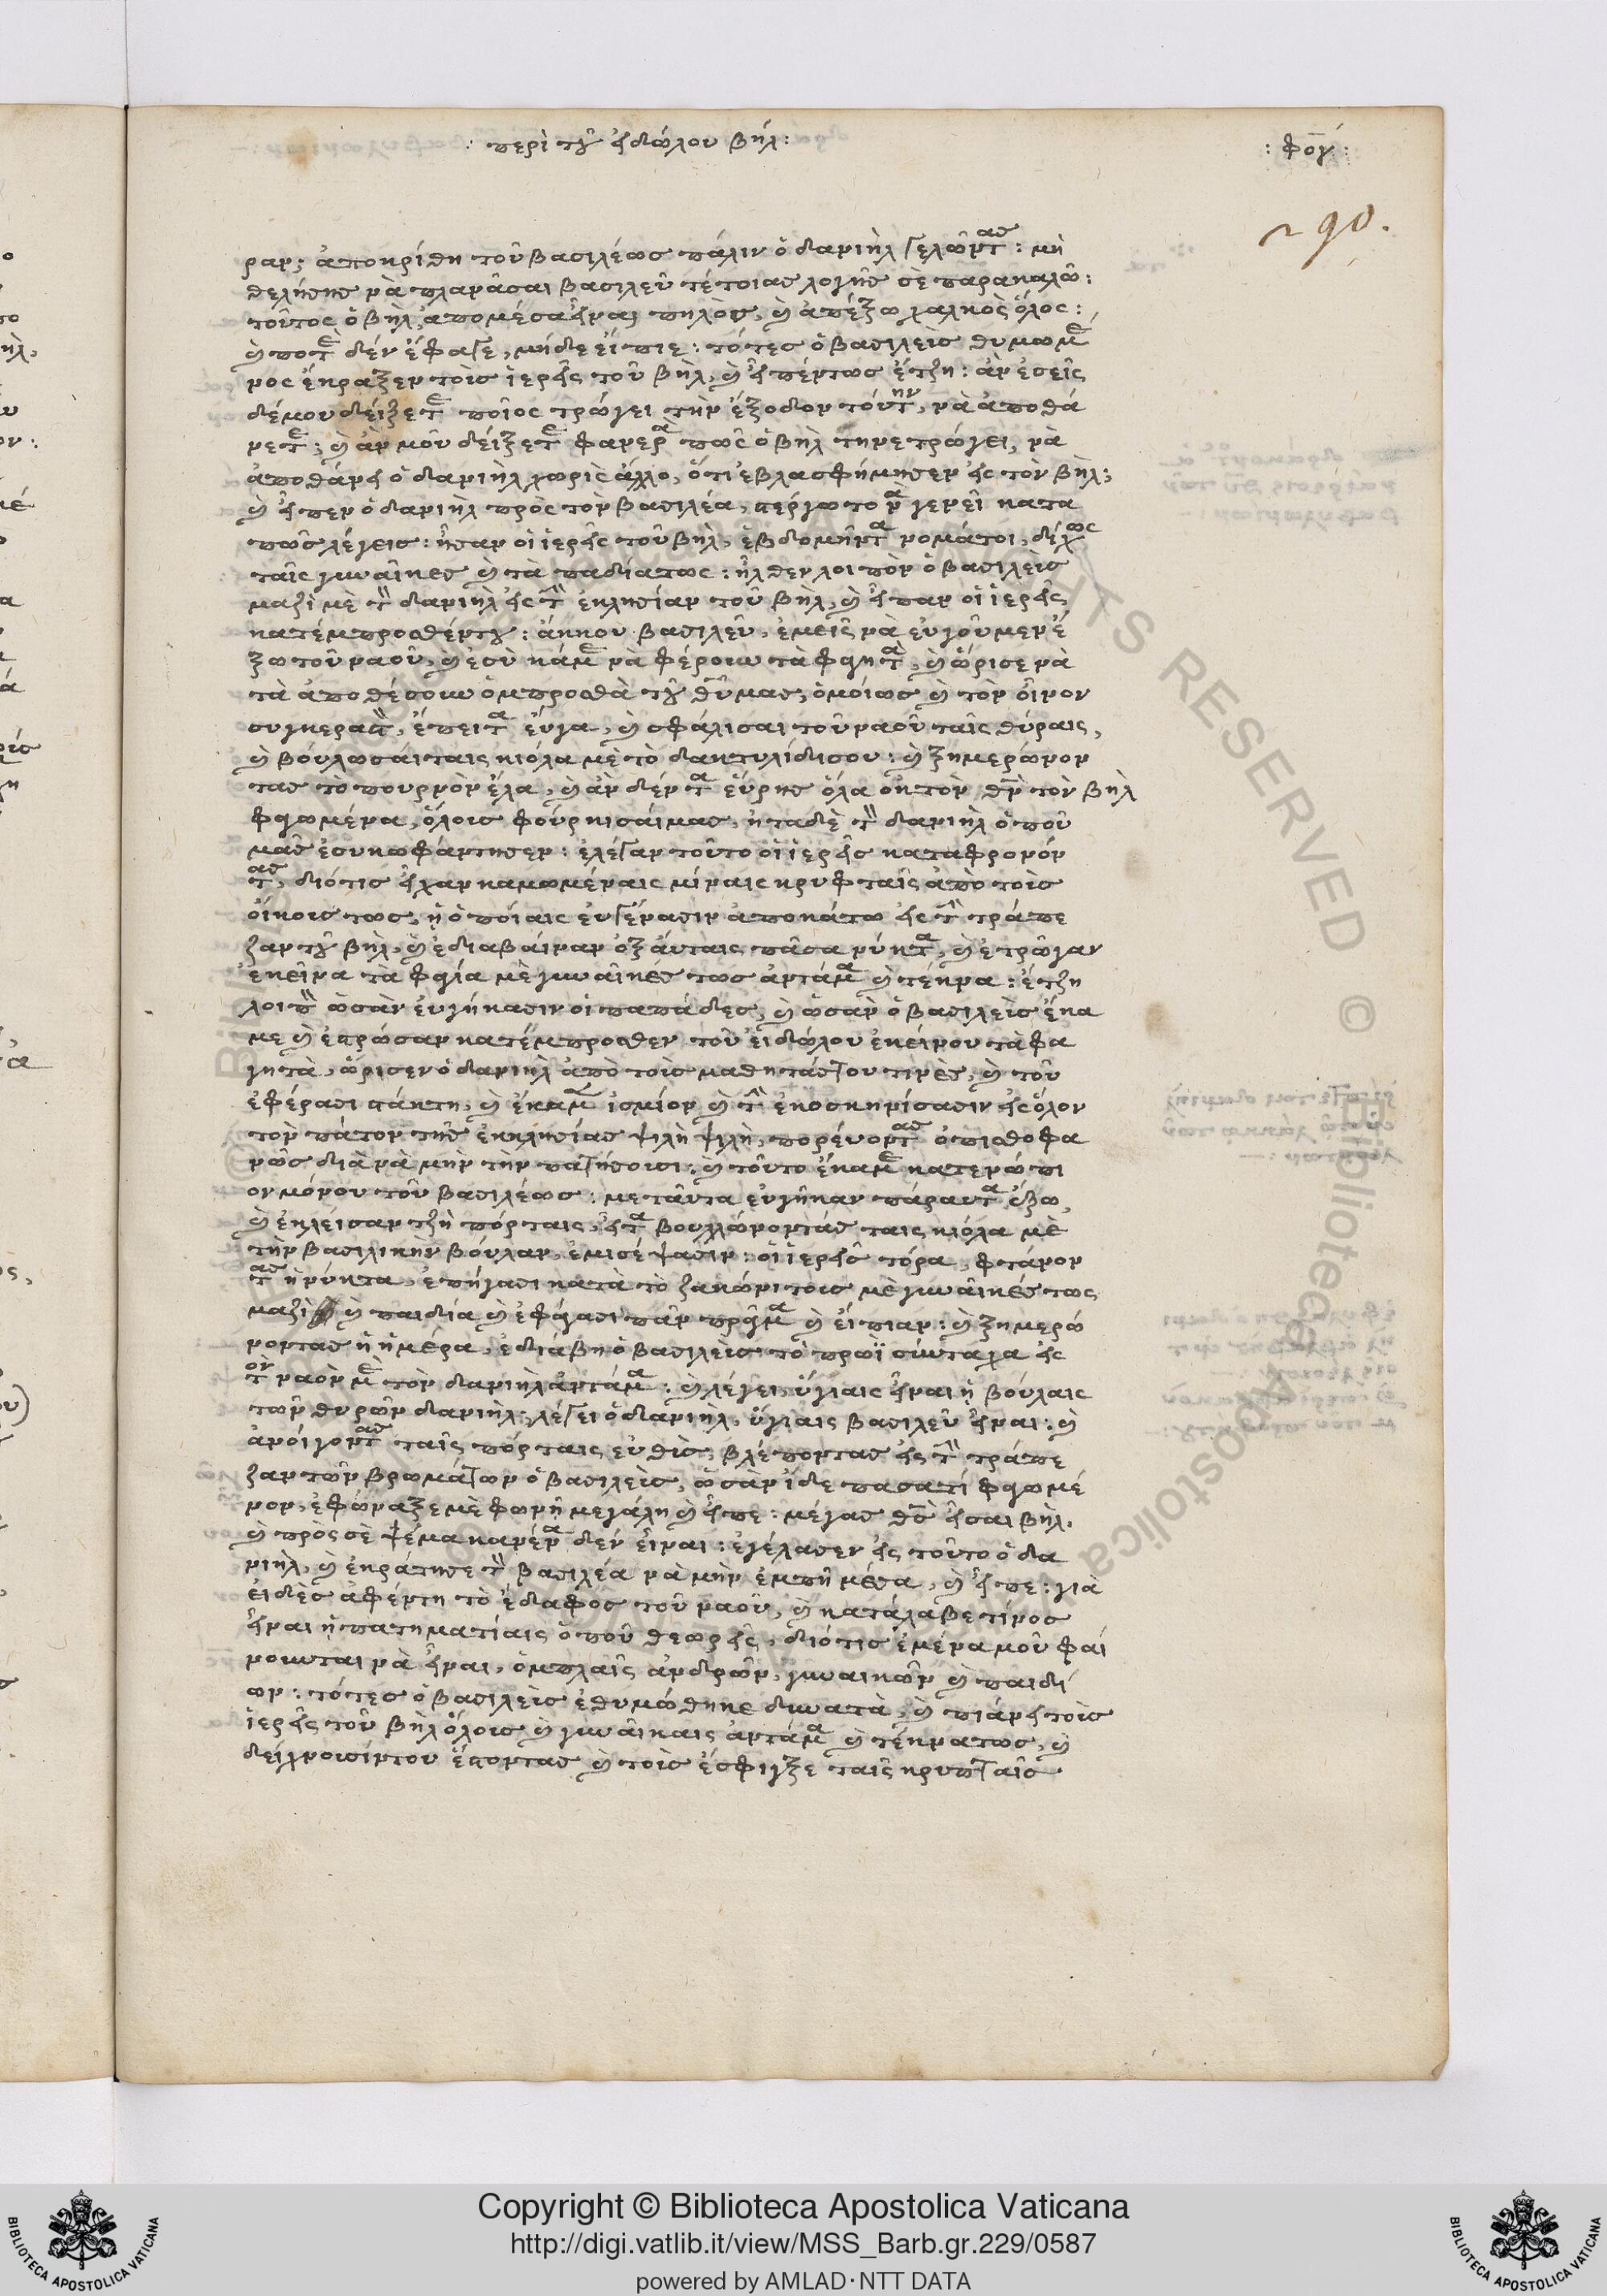 : περὶ τοῦ εἰδώλου βήλ :
: φογ :
290.
ραν; ἀποκρίθη τοῦ βασιλέως πάλιν ὁ δανιὴλ γελῶντας : μὴ
θελήσης νὰ πλανᾶσαι βασιλεῦ τέτοιας λογῆς σὲ παρακαλῶ :
τοῦτος ὁ βὴλ, ἀπομέσα εἶναι πηλὸς, καὶ ἀπέξω χαλκὸς ὅλος :
καὶ ποτὲ δέν ἔφαγε, μήδε εἴπιε : τότες ὁ βασιλεὺς θυμωμέ
νος ἔκραξεν τοὺς ἱερεῖς τοῦ βὴλ, καὶ εἶπέντως ἔτζη : ἀν ἐσεῖς
δέμου δείξετε ποῖος τρώγει τὴν ἔξοδον τούτην, νὰ ἀποθά
νετε; καὶ ἀν μοῦ δείξετε φανερὰ πῶς ὁ βὴλ τηνετρώγει, νὰ
ἀποθάνει ὁ δανιὴλ χωρὶς ἄλλο, ὅτι ἐβλασφήμησεν εἰς τὸν βὴλ;
καὶ εἶπεν ὁ δανιὴλ πρὸς τὸν βασιλέα, στέργω το νὰ γενεῖ κατα
πῶς λέγεις : ἦσαν οἱ ἱερεῖς τοῦ βὴλ, ἑβδομῆντα νομάτοι, δίχως
ταῖς γυναῖκες καὶ τὰ παδίατως : ἦλθεν λοιπὸν ὁ βασιλεὺς
μαζὶ μὲ τὸν δανιὴλ εἰς τὴν ἐκλησίαν τοῦ βὴλ, καὶ εἶπαν οἱ ἱερεῖς
κατέμπροσθέντου : ἄκκου βασιλεῦ, ἐμεῖς νὰ εὐγοῦμεν ἔ
ξω τοῦ ναοῦ, καὶ ἐσὺ κάμε νὰ φέρουν τὰ φαγητὰ, καὶ ὥρισε νὰ
τὰ ἀποθέσουν ὀμπροσθὰ τοῦ θεοῦμας, ὁμοίως καὶ τὸν οἶνον
συγκερατὸν, ἔπειτα εὔγα, καὶ σφάλισαι τοῦ ναοῦ ταῖς θύραις,
καὶ βούλωσάιταις κιόλα μὲ τὸ δακτυλίδισου : καὶ ξημερώνον
τας τὸ πουρνὸν ἔλα, καὶ ἀν δέν τα εὕρης ὅλα ἀπὸ τὸν θεὸν τὸν βὴλ
φαγωμένα, ὅλοις φούρκισάιμας, ἠταδὲ τὸν δανιὴλ ὁποῦ
μᾶς ἐσυκωφάντησεν : ἐλέγαν τοῦτο οἱ ἱερεῖς καταφρονόν
τας, διότις εἶχαν καμωμέναις μίναις κρυφταῖς ἀπὸ τοὺς
οἴκοις τως, ἡ ὁποίαις εὐγέναδιν ἀποκάτω εἰς τὴν τράπε
ζαν τοῦ βὴλ, καὶ ἐδιαβαίναν ὀξάυταις πᾶσα νύκτα, καὶ ἐτρῶγαν
ἐκεῖνα τὰ φαγία μὲ γυναῖκές τως ἀντάμα καὶ τέκνα : ἔτζη
λοιπὸν ὡσὰν ἐυγήκασιν οἱ παπάδες, καὶ ὡσὰν ὁ βασιλεὺς ἔκα
με καὶ ἐστρώσαν κατέμπροσθεν τοῦ εἰδώλου ἐκείνου τὰ φα
γητὰ, ὥρισεν ὁ δανιὴλ ἀπὸ τοὺς μαθητάδτου τινὲς, καὶ τοῦ
ἐφέρασι στάκτη, καὶ ἔκαμαν ἰσμίον καὶ τὴν ἐκοσκηνίσασιν εἰς ὅλον
τὸν πάτον τῆς ἐκκλησίας ψιλὴ ψιλὴ, πορέυοντας ὀπισθοφα
νῶς διὰ νὰ μὴν τὴν πατήσουσι, καὶ τοῦτο ἔκαμε κατενώπι
ον μόνου τοῦ βασιλέως : μετᾶυτα εὐγῆκαν πάραυτα ἔξω,
καὶ ἐκλείσαν τζὴ πόρταις, εἶτα βουλλώνοντάς ταις κιόλα μὲ
τὴν βασιλικὴν βούλαν, ἐμισέψασιν : οἱ ἱερεῖς τόρα, φτάνον
τας ἡ νύκτα, ἐπήγασι κατὰ τὸ ζακόνι τους μὲ γυναῖκές τως
μαζὶ καὶ παιδία καὶ ἐφάγασι πᾶν πρᾶγμα καὶ εἴπιαν : καὶ ξημερό
νοντας ἡ ἡμέρα, ἐδιάβη ὁ βασιλεὺς τὸ πρωΐ σύνταχα εἰς
τὸν ναὸν μὲ τὸν δανιὴλ ἀντάμα : καὶ λέγει, ὕγιαις εἶναι ἡ βούλαις
τῶν θυρῶν δανιὴλ; λέγει ὁ δανιὴλ, ὕγιαις βασιλεῦ εἶναι : καὶ
ἀνοίγοντας ταῖς πόρταις εὐθὺς, βλέποντας εἰς τὴν τράπε
ζαν τῶν βρωμάτων ὁ βασιλεὺς, ὡσὰν ἴδε πασατί φαγωμέ
νον, ἐφώναξε μὲ φωνὴ μεγάλη καὶ εἶπε : μέγας θεὸς εἶσαι βὴλ,
καὶ πρὸς σὲ ψέμα κανένα δεν εἶναι : ἐγέλασεν εἰς τοῦτο ὁ δα
νιὴλ, καὶ ἐκράτησε τὸν βασιλέα νὰ μὴν ἐμπῆ μέσα, καὶ εἶπε : γιὰ
εἰδὲς ἀφέντη τὸ ἔδαφος τοῦ ναοῦ, καὶ κατάλαβε τίνος
εἶναι ἡ πατηματίαις ὁποῦ θεωρεῖς, διότις ἐμένα μοῦ φαί
νουνται νὰ εἶναι, ὀμπλαῖς ἀνδρῶν, γυναικῶν καὶ παιδί
ων : τότες ὁ βασιλεὺς ἐθυμώθηκε δυνατὰ, καὶ πιάνει τοὺς
ἱερεῖς τοῦ βὴλ ὅλοις καὶ γυναῖκαις ἀντάμα καὶ τέκνατως, καὶ
δείχνουσίντου ἕστοντας καὶ τοὺς ἔσφιγξε ταῖς κρυπταῖς
Copyright © Biblioteca Apostolica Vaticana
http://digi.vatlib.it/view/MSS_Barb.gr.229/0587
powered by AMLAD·NTT DATA
BIBLIOTECA APOSTOLICA VATICANA
BIBLIOTECA APOSTOLICA VATICANA